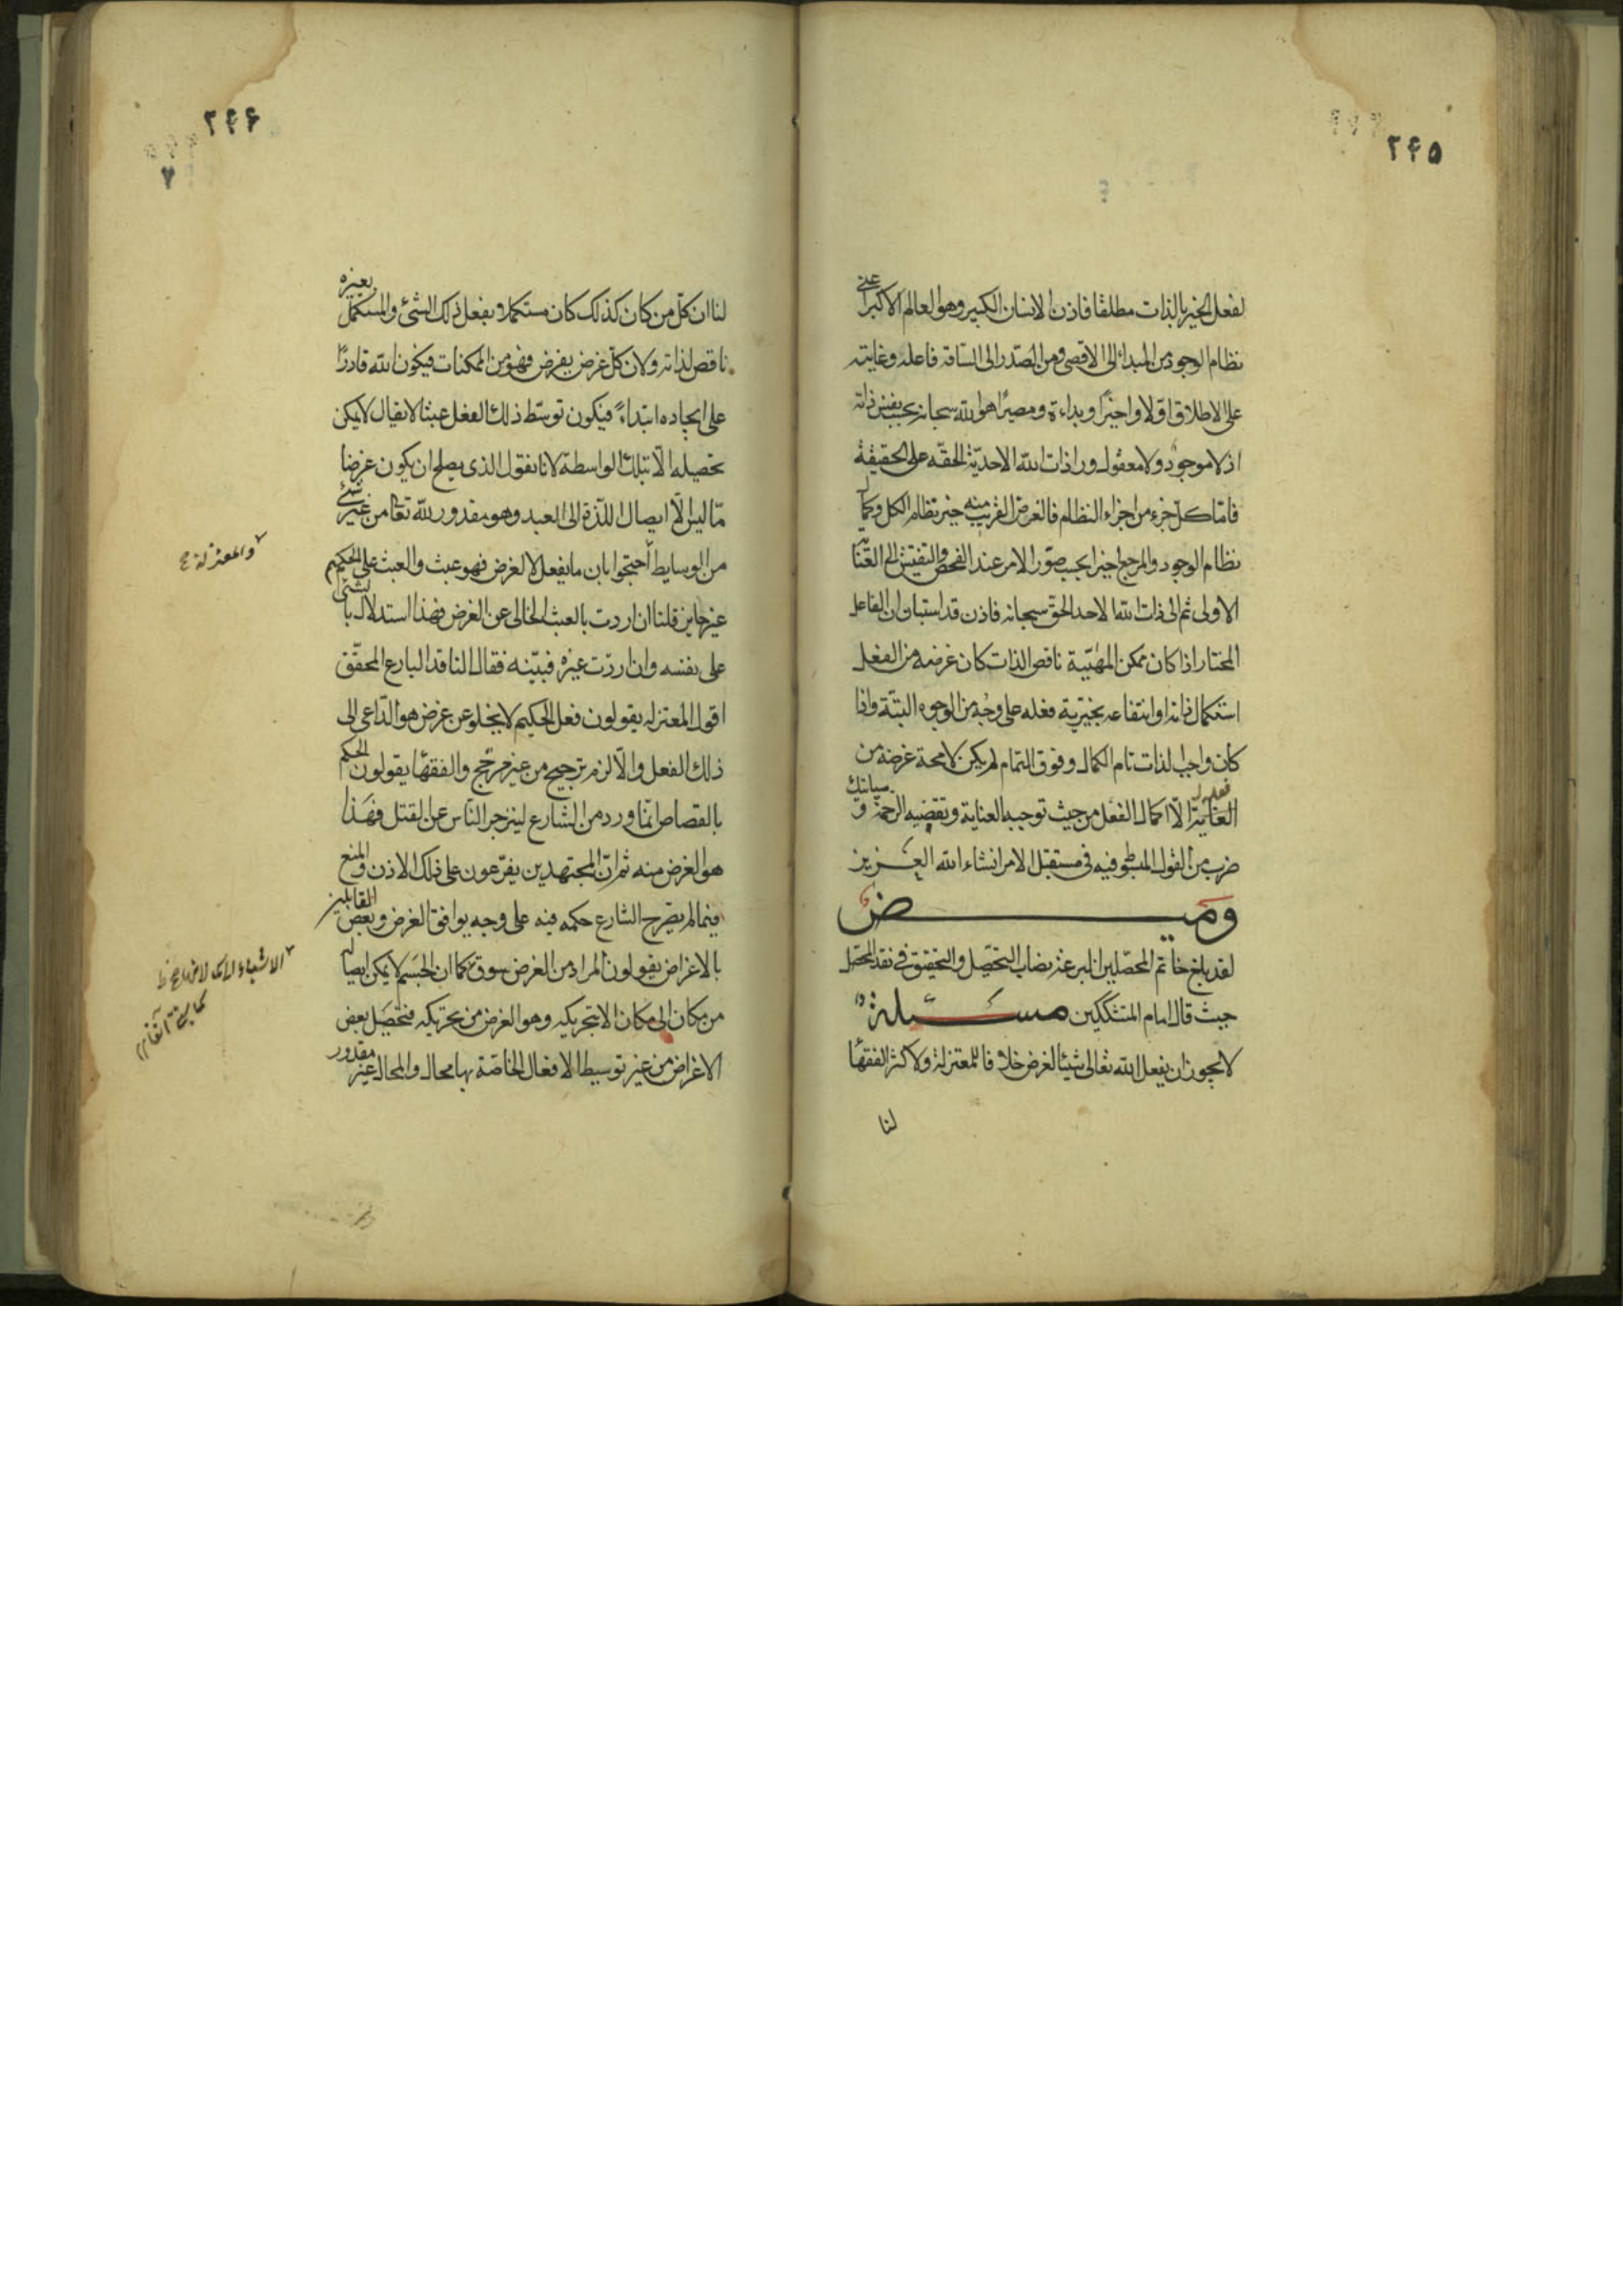 ۲۴۵
لفعل الخير بالذات مطلقا فاذن الانسان الكبير وهو العالم الاكبر اعنى
نظام الوجود من المبدا الى الاقصى ومن الصدر الى الساقة فاعله وغايته
على الاطلاق اولا واخيرا وبداءة ومصيرا هو الله سبحانه بحسب نفس ذاته
اذ لا موجود ولا معقول وراء ذات الله الاحدية الحقه على الحقيقة
فاما كل جزء من اجزاء النظام فالغرض القريب منه خير نظام الكل وكمال
نظام الوجود والمرجع اخيرا بحسب صيور الامر عند الفحص والتفتيش الى العناية
الاولى ثم الى ذات الله الاحد الحق سبحانه فاذن قد استبان ان الفاعل
المختار اذا كان ممكن المهية ناقص الذات كان غرضه من الفعل
استكمال ذاته او انتفاعه بخيرية فعله على وجه من الوجوه البتة واذا
كان واجب الذات تام الكمال وفوق التمام لم يكن لا محة غرضه من
فعله
العناية الا اكمال الفعل من حيث توجبه العناية وتقتضيه الرحمة و سياتيك
ضرب من القول المبسوط فيه فى مستقبل الامر انشاء الله العزيز
وميض
لقد بلغ خاتم المحصلين البرعة نصاب التحصيل والتحقيق فى نقد المحصل
حيث قال امام المتشككين مسئلة
لا يجوز ان يفعل الله تعالى شيئا لغرض خلافا للمعتزلة ولاكثر الفقها
لنا
۲۴۶
۷
لنا ان كل من كان كذلك كان مستكملا بفعل ذلك الشئ والمستكمل بغيره
ناقص لذاته ولان كل غرض يفرض فهو من الممكنات فيكون الله قادرا
على ايجاده ابتداء فيكون توسط ذلك الفعل عبثا لا يقال لا يمكن
تحصيله الا بتلك الواسطة لانا نقول الذى يصلح ان يكون غرضا
مما ليس الا ايصال اللذة الى العبد وهو مقدور لله تعا من غير شئ
من الوسايط احتجوا بان ما يفعل لا لغرض فهو عبث والعبث على الحكيم
غير جايز قلنا ان اردت بالعبث الخالى عن الغرض فهذا استدلال بالشئ
على نفسه وان اردت غيره فبينه فقال الناقد البارع المحقق
اقول المعتزله يقولون فعل الحكيم لا يخلو عن غرض هو الداعى الى
ذلك الفعل والا لزم ترجيح من غير مرجح والفقها يقولون الحكم
بالقصاص انما ورد من الشارع لينزجر الناس عن القتل فهذا
هو الغرض منه ثم ان المجتهدين يفرعون على ذلك الاذن والمنع
فيما لم يصرح الشارع حكمه فيه على وجه يوافق الغرض وبعض القايلين
بالاغراض يقولون المراد من الغرض سوق كما ان الجسم لا يمكن ايصاله
من مكان الى مكان الا بتحريكه وهو الغرض من تحريكه فتحصيل بعض
الاغراض من غير توسيط الافعال الخاصة بها محال والمحال غير مقدور
والمعتزلة ع
الاشياء الى كمالاتها